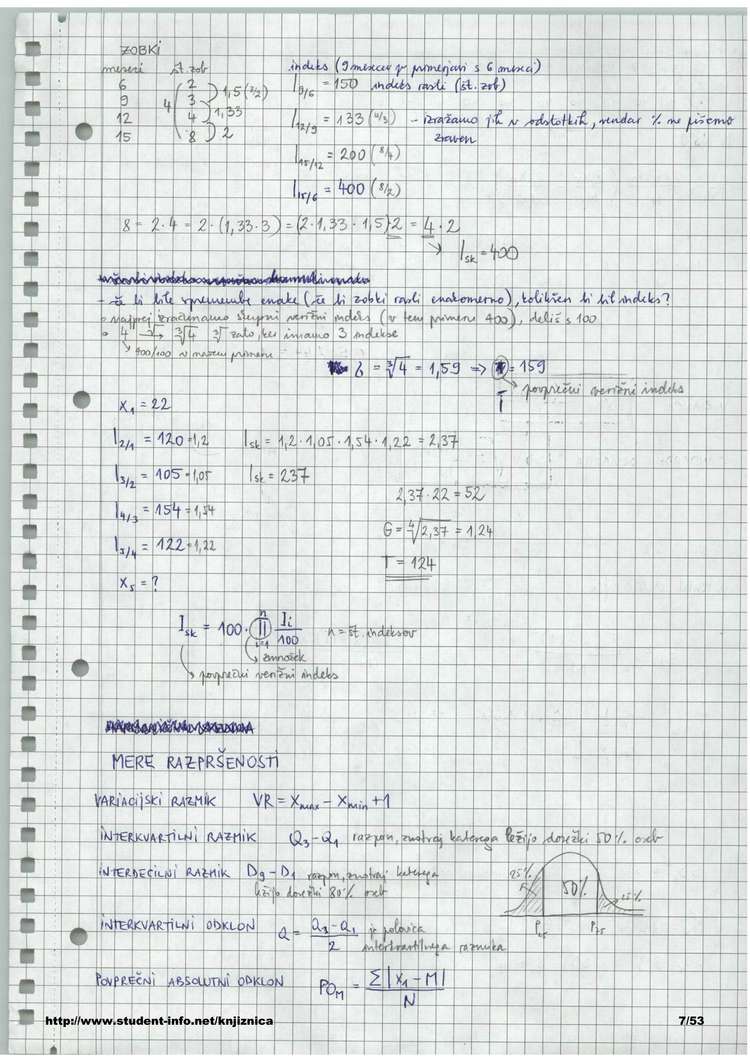 ZOBKI
meseci št. zob
6 2
9 3
12 4
15 8
4
1,5 (3/2)
1,33
2
indeks (9 mesecev v primerjavi s 6 meseci)
I9/6 = 150 indeks rasti (št. zob)
I12/9 = 133 (4/3) - izražamo jih v odstotkih, vendar % ne pišemo
zraven
I15/12 = 200 (8/4)
I15/6 = 400 (8/2)
8 = 2·4 = 2·(1,33·3) = (2·1,33·1,5)·2 = 4·2
Isk = 400
- če bi bile spremembe enake (če bi zobki rasli enakomerno), kolikšen bi bil indeks?
o najprej izračunamo skupni verižni indeks (v tem primeru 400), deliš s 100
o 4 → ∛4 ∛ zato, ker imamo 3 indekse
400/100 v našem primeru
G = ∛4 = 1,59 => T = 159
povprečni verižni indeks
T
x1 = 22
I2/1 = 120 = 1,2 Isk = 1,2·1,05·1,54·1,22 = 2,37
I3/2 = 105 = 1,05 Isk = 237
2,37·22 = 52
I4/3 = 154 = 1,54
G = ∜2,37 = 1,24
I5/4 = 122 = 1,22
T = 124
x5 = ?
Isk = 100·∏ Ii/100 n = št. indeksov
n
i=1
zmnožek
povprečni verižni indeks
MERE RAZPRŠENOSTI
VARIACIJSKI RAZMIK VR = Xmax - Xmin + 1
INTERKVARTILNI RAZMIK Q3 - Q1 razpon, znotraj katerega ležijo dosežki 50% oseb
INTERDECILNI RAZMIK D9 - D1 razpon, znotraj katerega
ležijo dosežki 80% oseb
25% 50% 25%
P25 P75
INTERKVARTILNI ODKLON Q = Q3 - Q1 / 2 je polovica
interkvartilnega razmika
POVPREČNI ABSOLUTNI ODKLON POM = Σ|x1 - M| / N
http://www.student-info.net/knjiznica 7/53